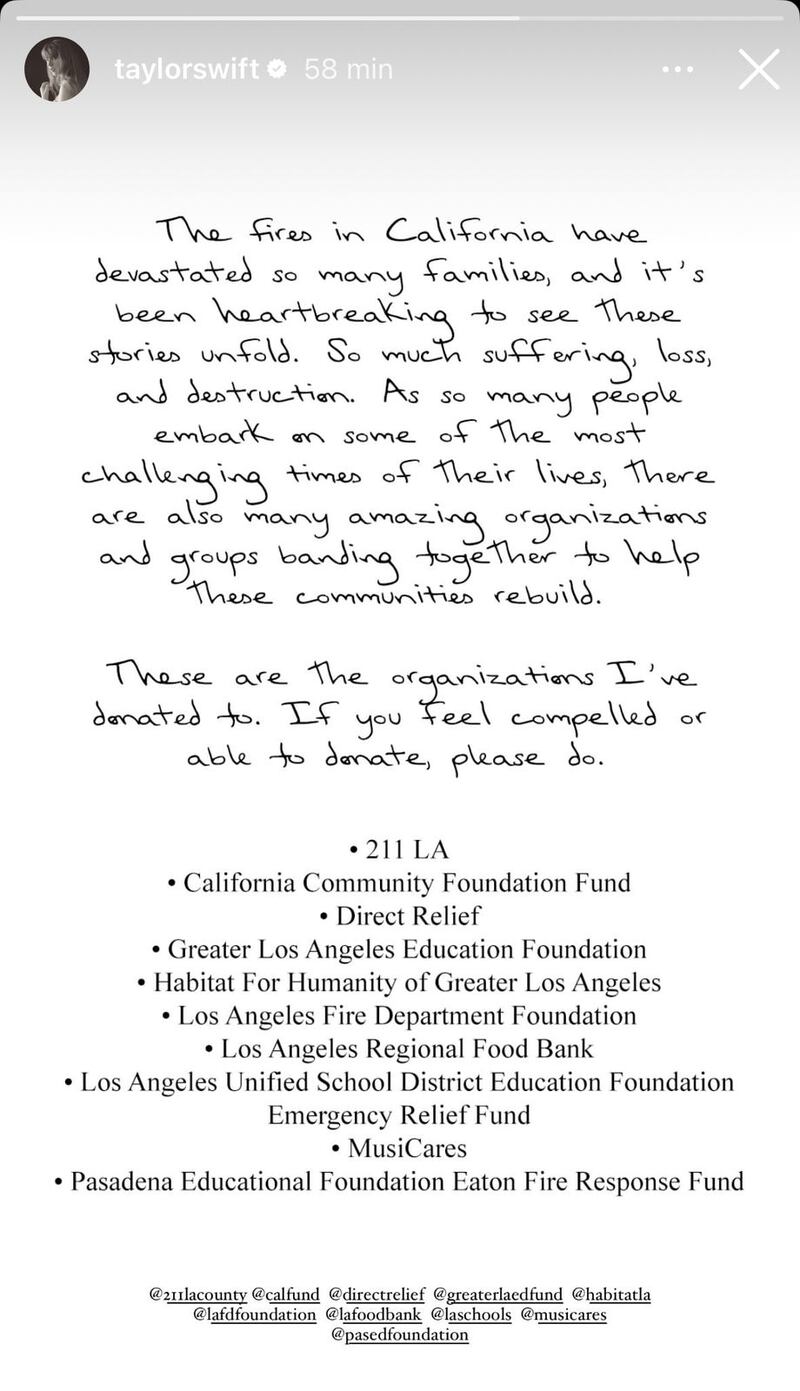 taylorswift 58 min
The fires in California have
devastated so many families, and it's
been heartbreaking to see these
stories unfold. So much suffering, loss,
and destruction. As so many people
embark on some of the most
challenging times of their lives, there
are also many amazing organizations
and groups banding together to help
these communities rebuild.
These are the organizations I've
donated to. If you feel compelled or
able to donate, please do.
• 211 LA
• California Community Foundation Fund
• Direct Relief
• Greater Los Angeles Education Foundation
• Habitat For Humanity of Greater Los Angeles
• Los Angeles Fire Department Foundation
• Los Angeles Regional Food Bank
• Los Angeles Unified School District Education Foundation
Emergency Relief Fund
• MusiCares
• Pasadena Educational Foundation Eaton Fire Response Fund
@211lacounty @calfund @directrelief @greaterlaedfund @habitatla
@lafdfoundation @lafoodbank @laschools @musicares
@pasedfoundation